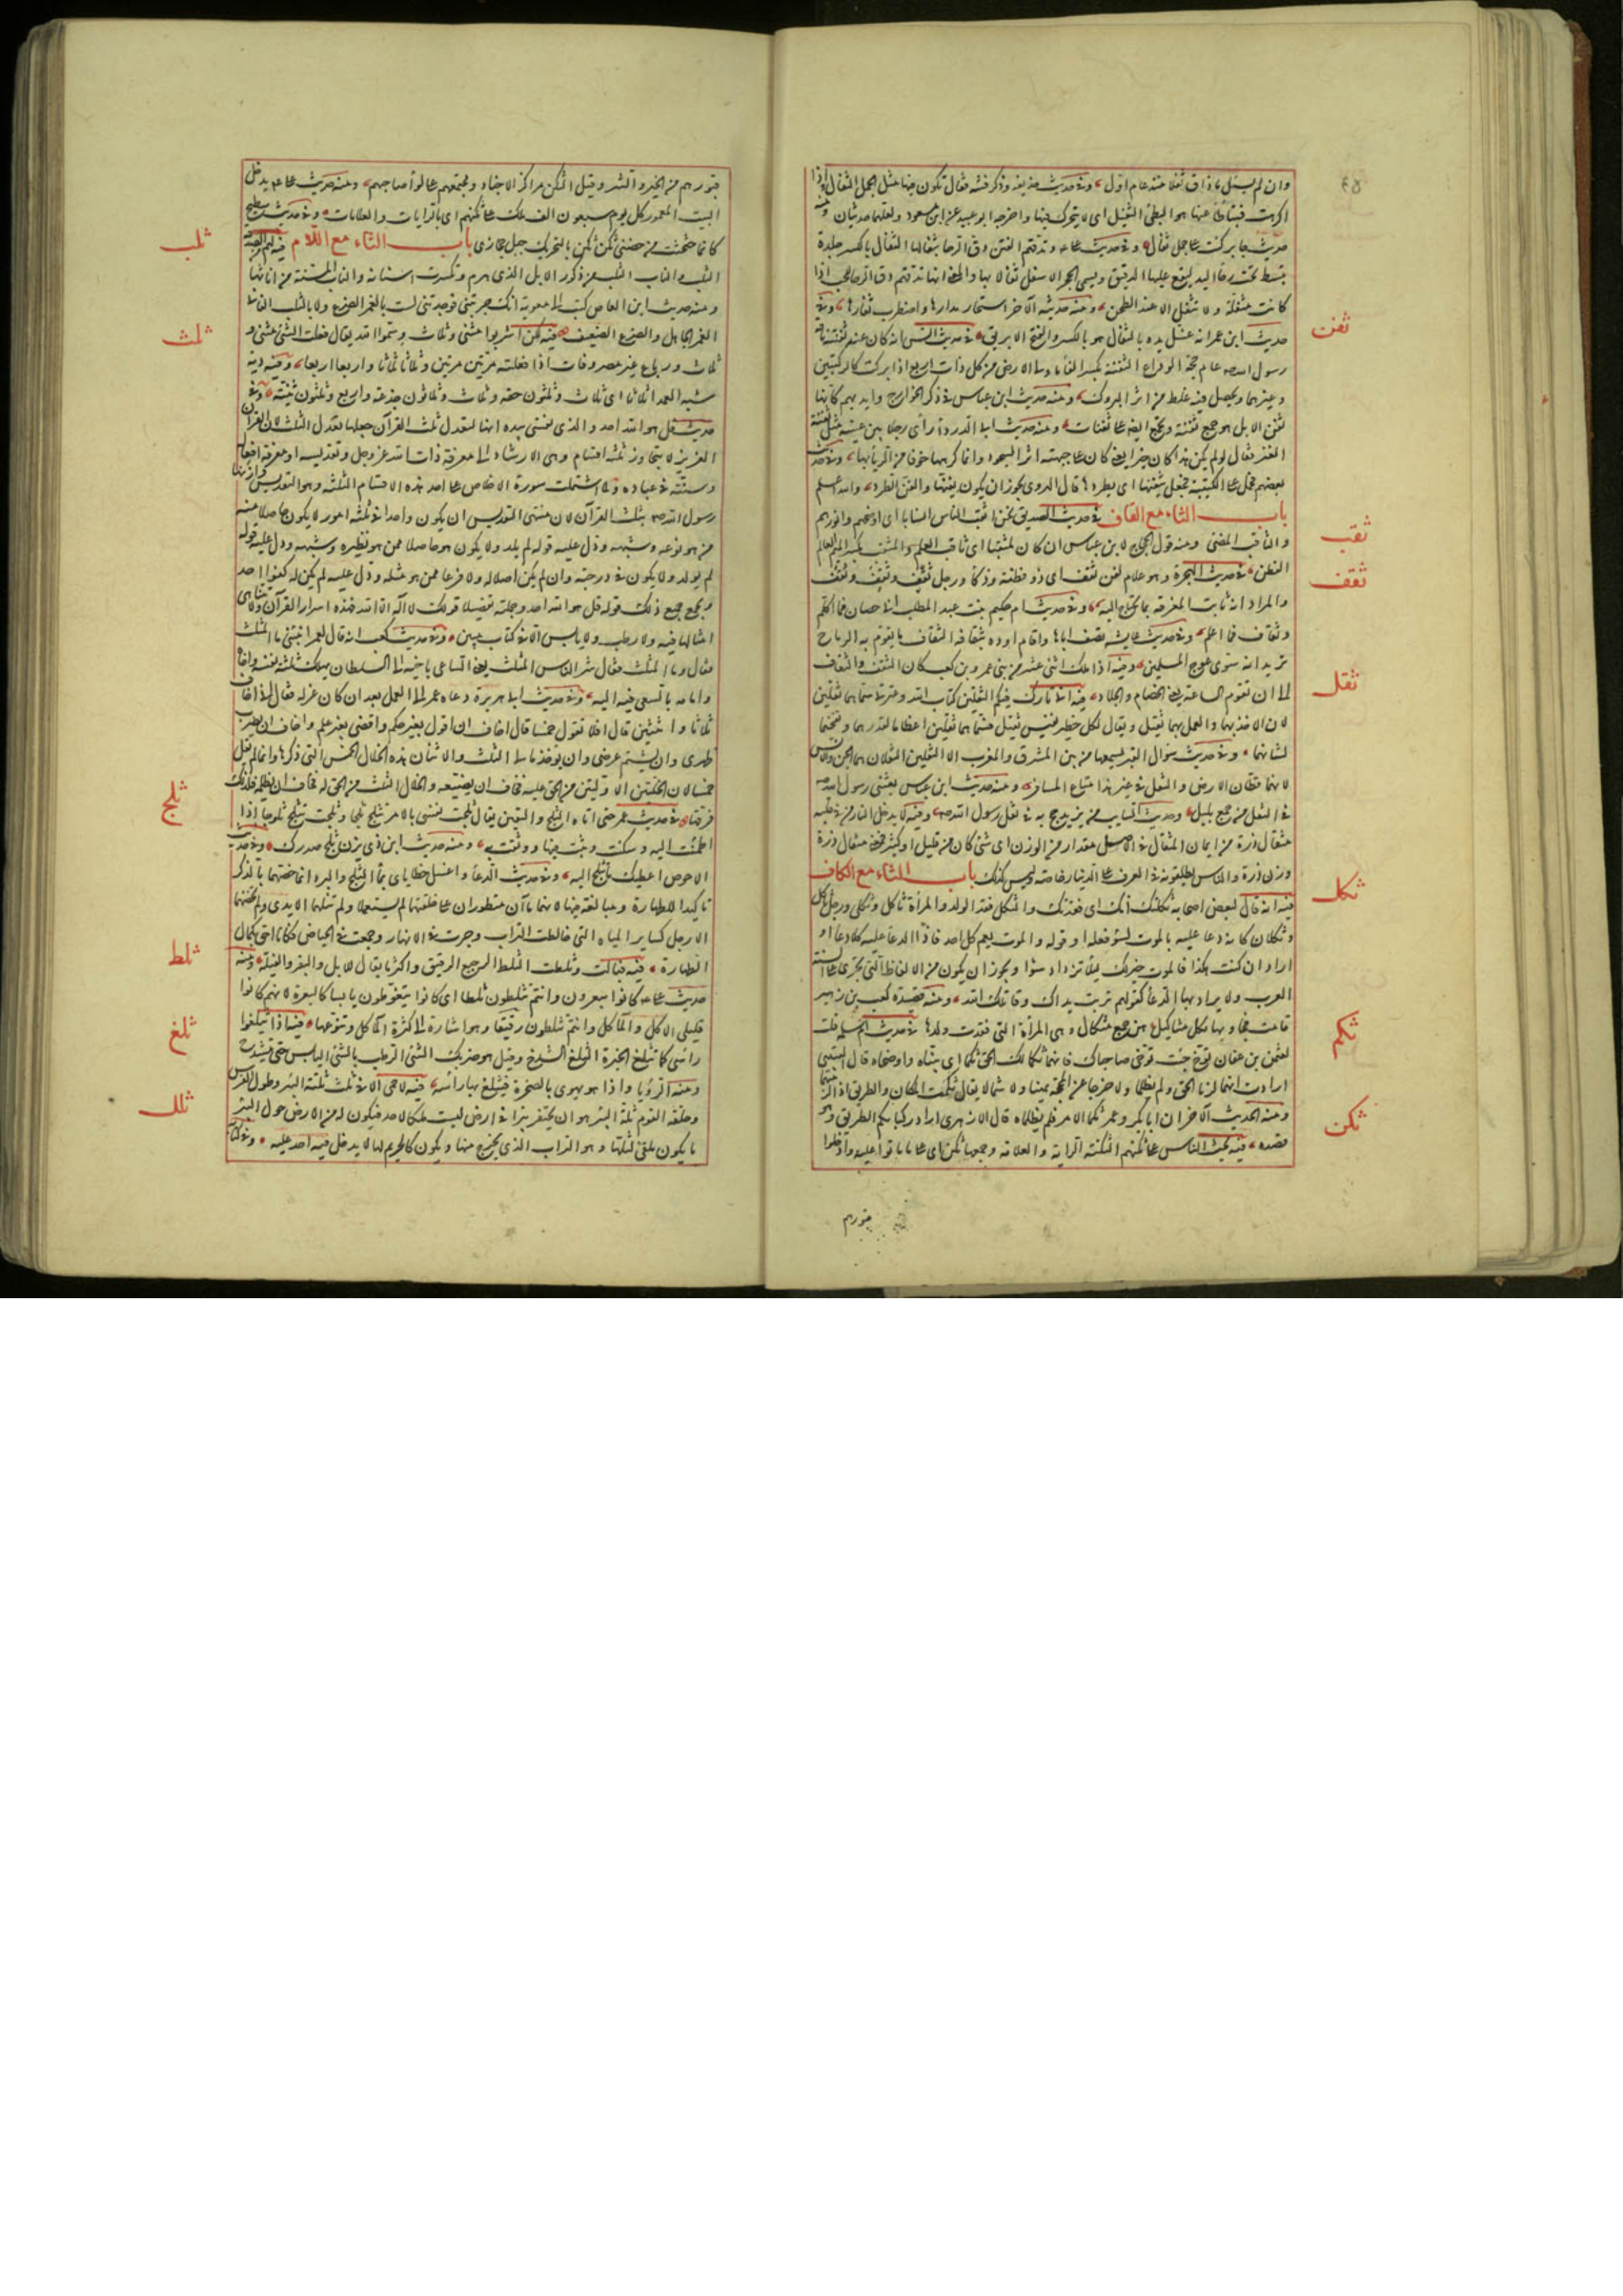 وان لم يبذل ما ذاق ثفلا منذ عام اول وفي حديث حذيفة وذكر فتنة فقال تكون فيها مثل الجمل الثفال واذا
اكرهت فتباطأ عنها هو البطيء الثقيل اي لا يتحرك فيها واخرجه ابو عبيد عن ابن مسعود ولعلهما حديثان ومنه
حديث جابر كنت على جمل ثفال وفي حديث علي وتدقهم الفتن دق الرحا بثفالها الثفال بالكسر جلدة
تبسط تحت رحا اليد ليقع عليها الدقيق ويسمى الحجر الاسفل ثفالا بها والمعنى انها تدقهم دق الرحا للحب اذا
كانت مثفلة ولا تثفل الا عند الطحن ومنه حديثه الآخر استحار مدارها واضطرب ثفالها وفي
حديث ابن عمر انه غسل يده بالثفال هو بالكسر والفتح الابريق
ثفن
في حديث انس انه كان عند ثفنة ناقة
رسول الله عام حجة الوداع الثفنة بكسر الفاء ما ولي الارض من كل ذات اربع اذا بركت كالركبتين
وغيرهما ويحصل فيه غلظ من اثر البروك ومنه حديث ابن عباس في ذكر الخوارج وايديهم كانها
ثفن الابل هو جمع ثفنة وتجمع ايضا على ثفنات ومنه حديث ابي الدرداء رأى رجلا بين عينيه مثل ثفنة
العنز فقال لو لم يكن هذا كان خيرا يعني كان على جبهته اثر السجود وانما كرهها خوفا من الرياء بها وفي حديث
بعضهم فحمل على الكتيبة فجعل يثفنها اي يطردها قال الهروي يجوز ان يكون يفنها والفن الطرد والله اعلم
باب الثاء مع القاف
ثقب
في حديث الصديق نحن اثقب الناس انسابا اي اوضحهم وانورهم
والثاقب المضيء ومنه قول الحجاج لابن عباس ان كان لمثقبا اي ثاقب العلم والمثقب بكسر الميم العالم
الفطن
ثقف
في حديث الهجرة وهو غلام لقن ثقف اي ذو فطنة وذكاء ورجل ثقف وثقف وثقف
والمراد انه ثابت المعرفة بما يحتاج اليه وفي حديث ام حكيم بنت عبد المطلب اني حصان فما اكلم
وثقاف فما اعلم وفي حديث عايشة تصف اباها واقام اوده بثقافه الثقاف ما يقوم به الرماح
تريد انه سوى عوج المسلمين وفيه اذا ملك اثني عشر من بني عمرو بن كعب كان الثقف والثقاف
الى ان تقوم الساعة يعني الخصام والجلاد
ثقل
فيه اني تارك فيكم الثقلين كتاب الله وعترتي سماهما ثقلين
لان الاخذ بهما والعمل بهما ثقيل ويقال لكل خطير نفيس ثقيل فسماهما ثقلين اعظاما لقدرهما وتفخيما
لشانهما وفي حديث سؤال القبر يسمعها من بين المشرق والمغرب الا الثقلين الثقلان هما الجن والانس
لانهما قطان الارض والثقل في غير هذا متاع المسافر ومنه حديث ابن عباس بعثني رسول الله
في الثقل من جمع بليل وحديث السايب بن يزيد حج به في ثقل رسول الله وفيه لا يدخل النار من في قلبه
مثقال ذرة من ايمان المثقال في الاصل مقدار من الوزن اي شيء كان من قليل او كثير فمعنى مثقال ذرة
وزن ذرة والناس يطلقونه في العرف على الدينار خاصة وليس كذلك باب الثاء مع الكاف
ثكل
فيه انه قال لبعض اصحابه ثكلتك امك اي فقدتك والثكل فقد الولد والمرأة ثاكل وثكلى ورجل ثاكل
وثكلان كانه دعا عليه بالموت لسوء فعله او قوله والموت يعم كل احد فاذا الدعاء عليه كلا دعاء او
اراد ان كنت هكذا فالموت خير لك ليلا تزداد سوءا ويجوز ان يكون من الالفاظ التي تجري على السنة
العرب ولا يراد بها الدعاء كقولهم تربت يداك وقاتلك الله ومنه قصيدة كعب بن زهير
قامت فجاوبها نكل مثاكيل هن جمع مثكال وهي المرأة التي فقدت ولدها
ثكم
في حديث ام سلمة قالت
لعثمن بن عفان توخ حيث توخى صاحباك فانهما ثكما لك الحق ثكما اي بيناه واوضحاه قال القتيبي
ارادت انهما لزما الحق ولم يظلما ولا خرجا عن المحجة يمينا ولا شمالا يقال ثكمت المكان والطريق اذا لزمتهما
ومنه الحديث الآخر ان ابا بكر وعمر ثكما الامر فلم يظلماه قال الازهري اراد ركبا ثكم الطريق وهو
قصده
ثكن
فيه يحشر الناس على ثكنهم الثكنة الراية والعلامة وجمعها ثكن اي على ما ماتوا عليه وادخلوا
قبورهم
قبورهم من الخير والشر وقيل الثكن مراكز الاجناد ومجتمعهم على لواء صاحبهم ومنه حديث علي يدخل
البيت المعمور كل يوم سبعون الف ملك على ثكنهم اي بالرايات والعلامات وفي حديث سطيح
كانما حثحث من حضني ثكن ثكن بالتحريك جبل حجازي باب الثاء مع اللام
ثلب
فيه لهم من الصدقة
الثلب والناب الثلب من ذكور الابل الذي هرم وتكسرت اسنانه والناب المسنة من اناثها
ومنه حديث ابن العاص كتب الى معوية انك جربتني فوجدتني لست بالغمر الضرع ولا بالثلب الفاني
الغمر الجاهل والضرع الضعيف
ثلث
فيه لكن اشربوا مثنى وثلاث وسموا الله يقال فعلت الشيء مثنى و
ثلاث ورباع غير مصروفات اذا فعلته مرتين مرتين وثلاثا ثلاثا واربعا اربعا وفيه دية
شبه العمد اثلاثا اي ثلاث وثلثون حقة وثلاث وثلاثون جذعة واربع وثلثون ثنية وفي
حديث قل هو الله احد والذي نفسي بيده انها لتعدل ثلث القرآن جعلها تعدل الثلث لان القرآن
العزيز لا يتجاوز ثلثة اقسام وهي الارشاد الى معرفة ذات الله عز وجل وتقديسه او معرفة افعاله
وسنته في عباده ولما اشتملت سورة الاخلاص على احد هذه الاقسام الثلثة وهو التقديس وازنها
رسول الله بثلث القرآن لان منتهى التقديس ان يكون واحدا في ثلثة امور لا يكون حاصلا منه
من هو نوعه وشبهه ودل عليه قوله لم يلد ولا يكون هو حاصلا ممن هو نظيره وشبهه ودل عليه قوله
لم يولد ولا يكون في درجته وان لم يكن اصلا له ولا فرعا من هو مثله ودل عليه لم يكن له كفوا احد
ويجمع جميع ذلك قوله قل هو الله احد وجملته تفصيل قولك لا اله الا الله فهذه اسرار القرآن ولا تتناهى
امثالها فيه ولا رطب ولا يابس الا في كتاب مبين وفي حديث كعب انه قال لعمر انبئني ما المثلث
فقال وما المثلث فقال شر الناس المثلث يعني الساعي باخيه الى السلطان يهلك ثلثة نفسه واخاه
وامامه بالسعي فيه اليه وفي حديث ابي هريرة دعاه عمر الى العمل بعد ان كان عزله فقال اني اخاف
ثلاثا واثنتين قال افلا تقول خمسا قال اخاف ان اقول بغير حكم واقضي بغير علم واخاف ان يضرب
ظهري وان يشتم عرضي وان يؤخذ مالي الثلث والاثنان هذه الخلال الخمس التي ذكرها وانما لم يقل
خمسا لان الخلتين الاوليين من الحق عليه فخاف ان يضيعه والخلال الثلث من الحق له فخاف ان يظلم فلذلك
فرقها
ثلج
في حديث عمر حتى اتاه الثلج واليقين يقال ثلجت نفسي بالامر تثلج ثلجا وثلجت تثلج ثلوجا اذا
اطمأنت اليه وسكنت وثبت فيها ووثقت به ومنه حديث ابن ذي يزن وثلج صدرك وفي حديث
الاحوص اعطيك ما تثلج اليه وفي حديث الدعاء واغسل خطاياي بماء الثلج والبرد انما خصهما بالذكر
تاكيدا للطهارة ومبالغة فيها لانهما ماآن مفطوران على خلقتهما لم يستعملا ولم تنلهما الايدي ولم تخضهما
الارجل كساير المياه التي خالطت التراب وجرت في الانهار وجمعت في الحياض فكانا احق بكمال
الطهارة
ثلط
فيه فبالت وثلطت الثلط الرجيع الرقيق واكثر ما يقال للابل والبقر والفيلة ومنه
حديث علي كانوا يبعرون وانتم تثلطون ثلطا اي كانوا يتغوطون يابسا كالبعر لانهم كانوا
قليلي الاكل والمآكل وانتم تثلطون رقيقا وهو اشارة الى كثرة المآكل وتنوعها
ثلغ
فيه اذا يثلغوا
رأسي كما تثلغ الخبزة الثلغ الشدخ وقيل هو ضربك الشيء الرطب بالشيء اليابس حتى ينشدخ
ومنه الرؤيا واذا هو يهوي بالصخرة فيثلغ بها رأسه
ثلل
فيه لا حمى الا في ثلث ثلة البئر وطول الفرس
وحلقة القوم ثلة البئر هو ان يحتفر بئرا في ارض ليست ملكا لاحد فيكون له من الارض حول البئر
ما يكون ملقى لثلتها وهو التراب الذي يخرج منها ويكون كالحريم لها لا يدخل فيه احد عليه وفي كتابه